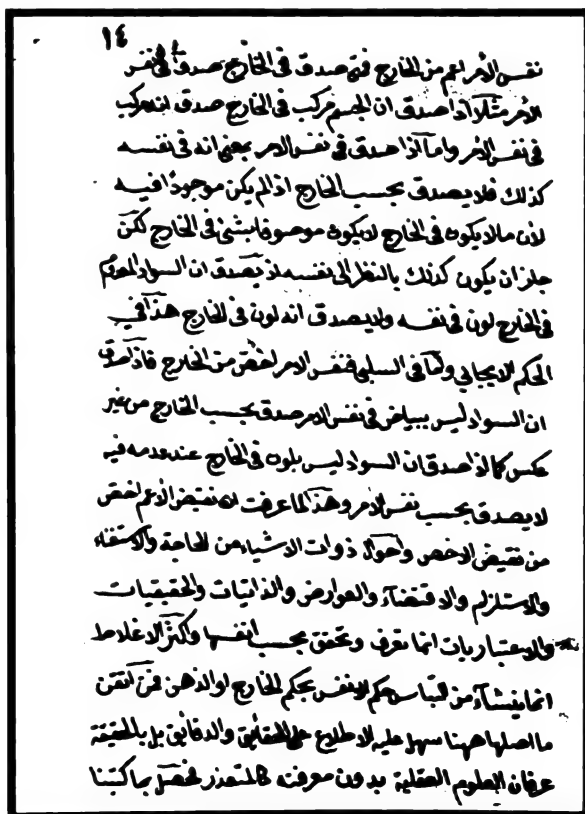 ١٤
نفس الأمر اعم من الخارج فمتى صدق فى الخارج صدق فى نفس
الأمر مثلا اذا صدق ان الجسم مركب فى الخارج صدق انه مركب
فى نفس الأمر واما اذا صدق فى نفس الامر بمعنى انه فى نفسه
كذلك فلا يصدق بحسب الخارج اذ لم يكن موجودا فيه
لأن ما لا يكون فى الخارج لا يكون موصوفا بشئ فى الخارج لكن
جاز ان يكون كذلك بالنظر الى نفسه اذ يصدق ان السواد المعدوم
فى الخارج لون فى نفسه ولا يصدق انه لون فى الخارج هذا فى
الحكم الايجابي واما فى السلبى فنفس الامر اخص من الخارج فاذا صدق
ان السواد ليس ببياض فى نفس الامر صدق بحسب الخارج من غير
عكس كما اذا صدق ان السواد ليس بلون فى الخارج عند عدمه فيه
لا يصدق بحسب نفس الأمر وهذا لما عرفت ان نقيض الاعم اخص
من نقيض الاخص واحوال ذوات الاشياء من الحاجة والاستغناء
والاستلزام والاقتضاء والعوارض والذاتيات والحقيقيات
والاعتباريات انما تعرف وتحقق بحسب انفسها واكثر الاغلاط
انما ينشآء من التباس حكم الانفس بحكم الخارج او الذهن فمن اتقن
ما اصلها ههنا سهل عليه الاطلاع على الحقايق والدقايق بل بالحقيقة
عرفان العلوم العقلية بدون معرفته كالمتعذر فحصل بما كتبنا